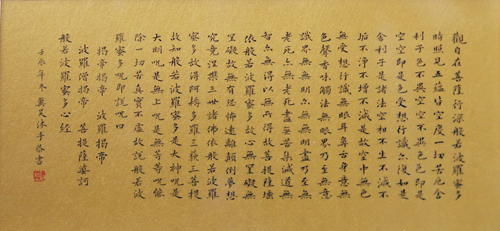 觀自在菩薩行深般若波羅蜜多
時照見五蘊皆空度一切苦厄舍
利子色不異空空不異色色即是
空空即是色受想行識亦復如是
舍利子是諸法空相不生不滅不
垢不淨不增不減是故空中無色
無受想行識無眼耳鼻舌身意無
色聲香味觸法無眼界乃至無意
識界無無明亦無無明盡乃至無
老死亦無老死盡無苦集滅道無
智亦無得以無所得故菩提薩埵
依般若波羅蜜多故心無罣礙無
罣礙故無有恐怖遠離顛倒夢想
究竟涅槃三世諸佛依般若波羅
蜜多故得阿耨多羅三藐三菩提
故知般若波羅蜜多是大神咒是
大明咒是無上咒是無等等咒能
除一切苦真實不虛故說般若波
羅蜜多咒即說咒曰
揭帝揭帝 波羅揭帝
波羅僧揭帝 菩提薩婆訶
般若波羅蜜多心經
壬辰年冬 沐手恭書